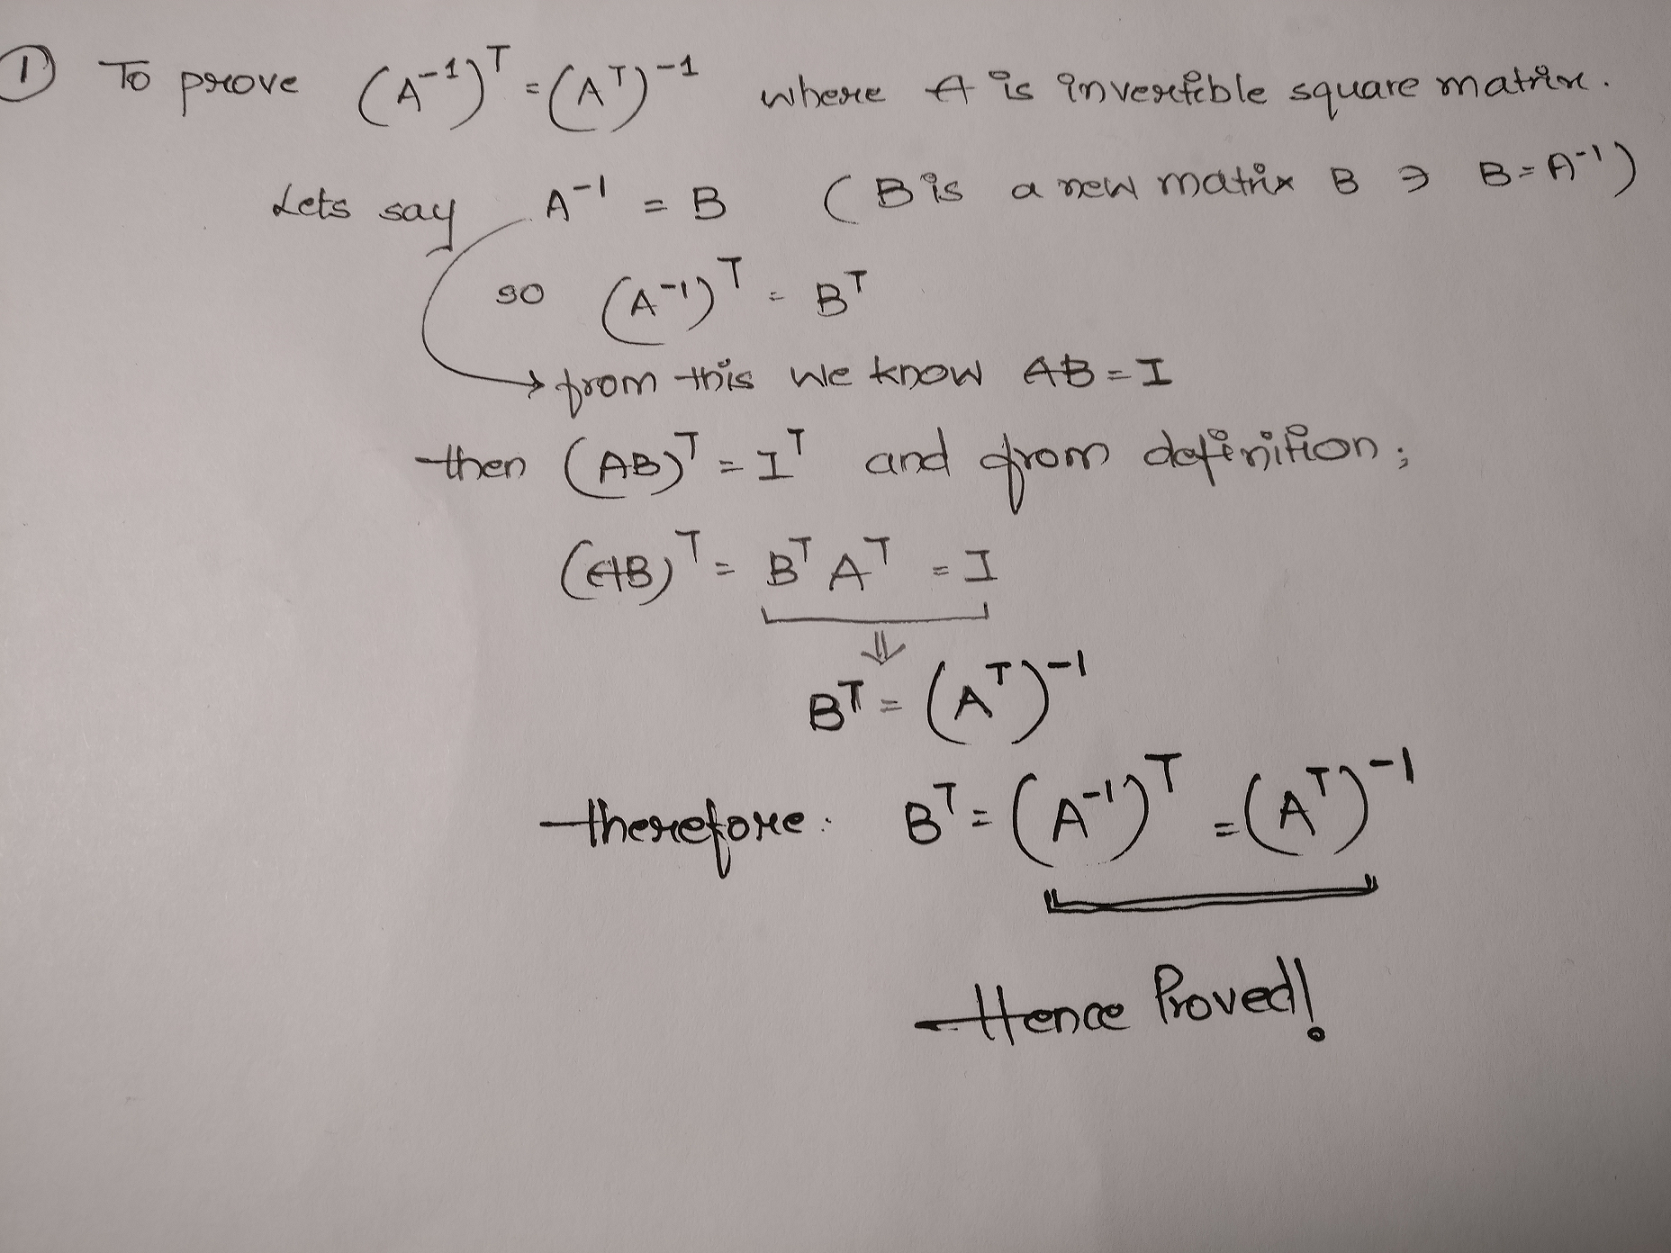 ① To prove (A⁻¹)ᵀ = (Aᵀ)⁻¹ where A is invertible square matrix.
Lets say A⁻¹ = B (B is a new matrix B ∋ B = A⁻¹)
so (A⁻¹)ᵀ = Bᵀ
→ from this we know AB = I
then (AB)ᵀ = Iᵀ and from definition;
(AB)ᵀ = Bᵀ Aᵀ = I
⇓
Bᵀ = (Aᵀ)⁻¹
therefore: Bᵀ = (A⁻¹)ᵀ = (Aᵀ)⁻¹
Hence Proved!